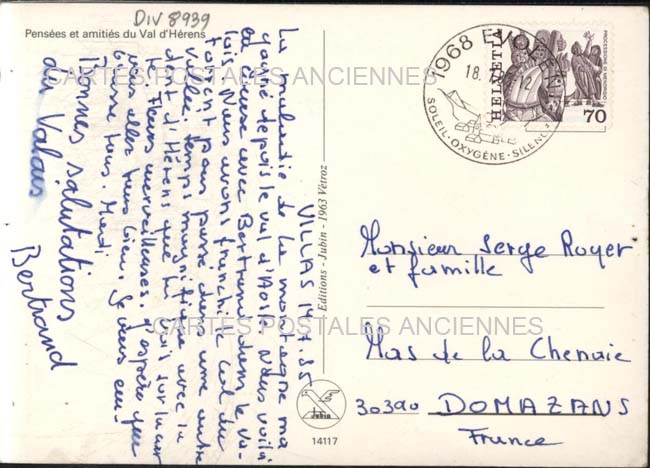 DIV 8939
Pensées et amitiés du Val d'Hérens
VILLAS 14.7.85
La maladie de la montagne m'a
gagné depuis le val d'Aoste. Nous voilà
en Suisse avec Bertrand dans le Va-
lais. Nous avons franchi le col du
pour passer dans une autre
vallée. Temps magnifique avec la
dent d'Hérens que tu vois sur la carte
Fleurs merveilleuses. J'espère que
vous allez tous bien. Je
tous.
Bonnes salutations
du Valais
Bertrand
Editions - Jubin - 1963 Vétroz
JUBIN
14117
1968 EVOLÈNE
18.
12
SOLEIL · OXYGÈNE · SILENCE
HELVETIA
PROCESSIONE DI MENDRISIO
70
Monsieur Serge Royer
et famille
Mas de la Chenaie
30390 DOMAZANS
France
CARTES POSTALES ANCIENNES
CARTES POSTALES ANCIENNES